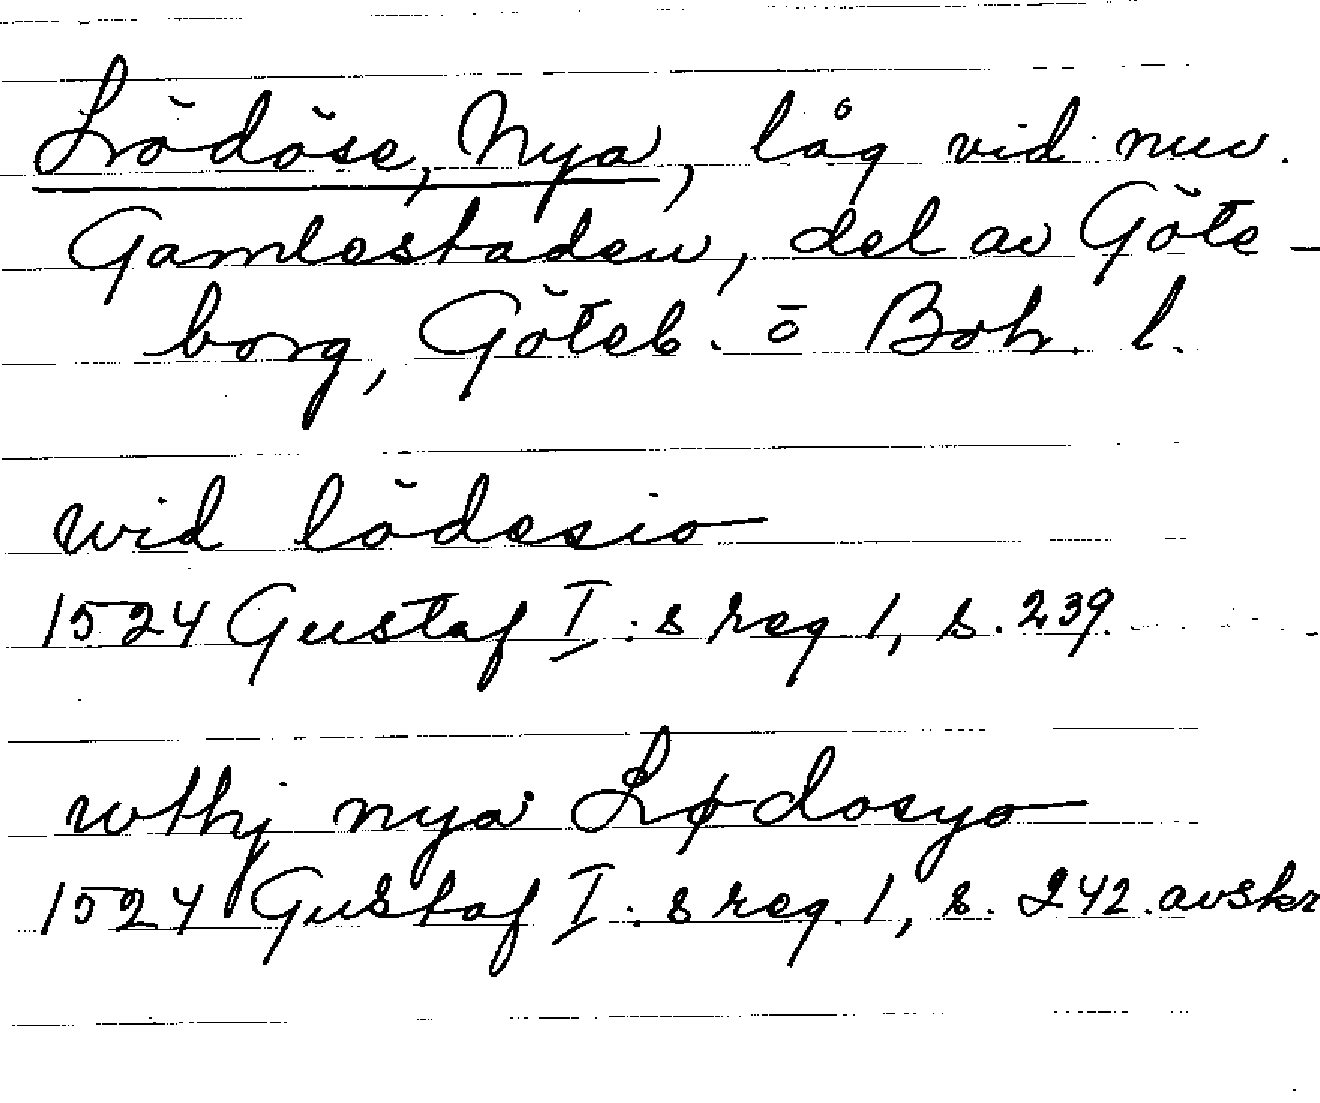 Lödöse, Nya, låg vid nuv.
Gamlestaden, del av Göte-
borg, Göteb. o Boh. l.
wid lödesio
1524 Gustaf I:s reg 1, s. 239.
wthj nya Lødosyo
1524 Gustaf I:s reg. 1, s. 242. avskr